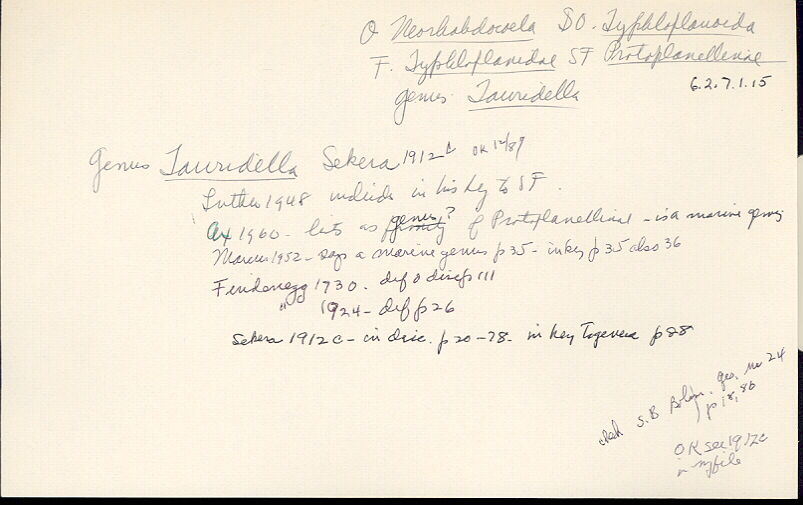 O Neorhabdocoela SO. Typhloplanoida
F. Typhloplanidae SF Protoplanellinae
genus Tauridella 6.2.7.1.15
Genus Tauridella Sekera 1912c OK 12/89
Luther 1948 includes in his key to SF.
Ax 1960 - lists as family genus? of Protoplanellinae - is a marine genus
Marcus 1952 - says a marine genus p 35 - in key p 35 also 36
Findenegg 1930. def & disc p 111
" 1924 - def p 26
Sekera 1912c - in disc. p 20-28 - in key To genera p 28
check S.B Böhm. ges. no 24
p 18, 86
OK see 1912c
in my file